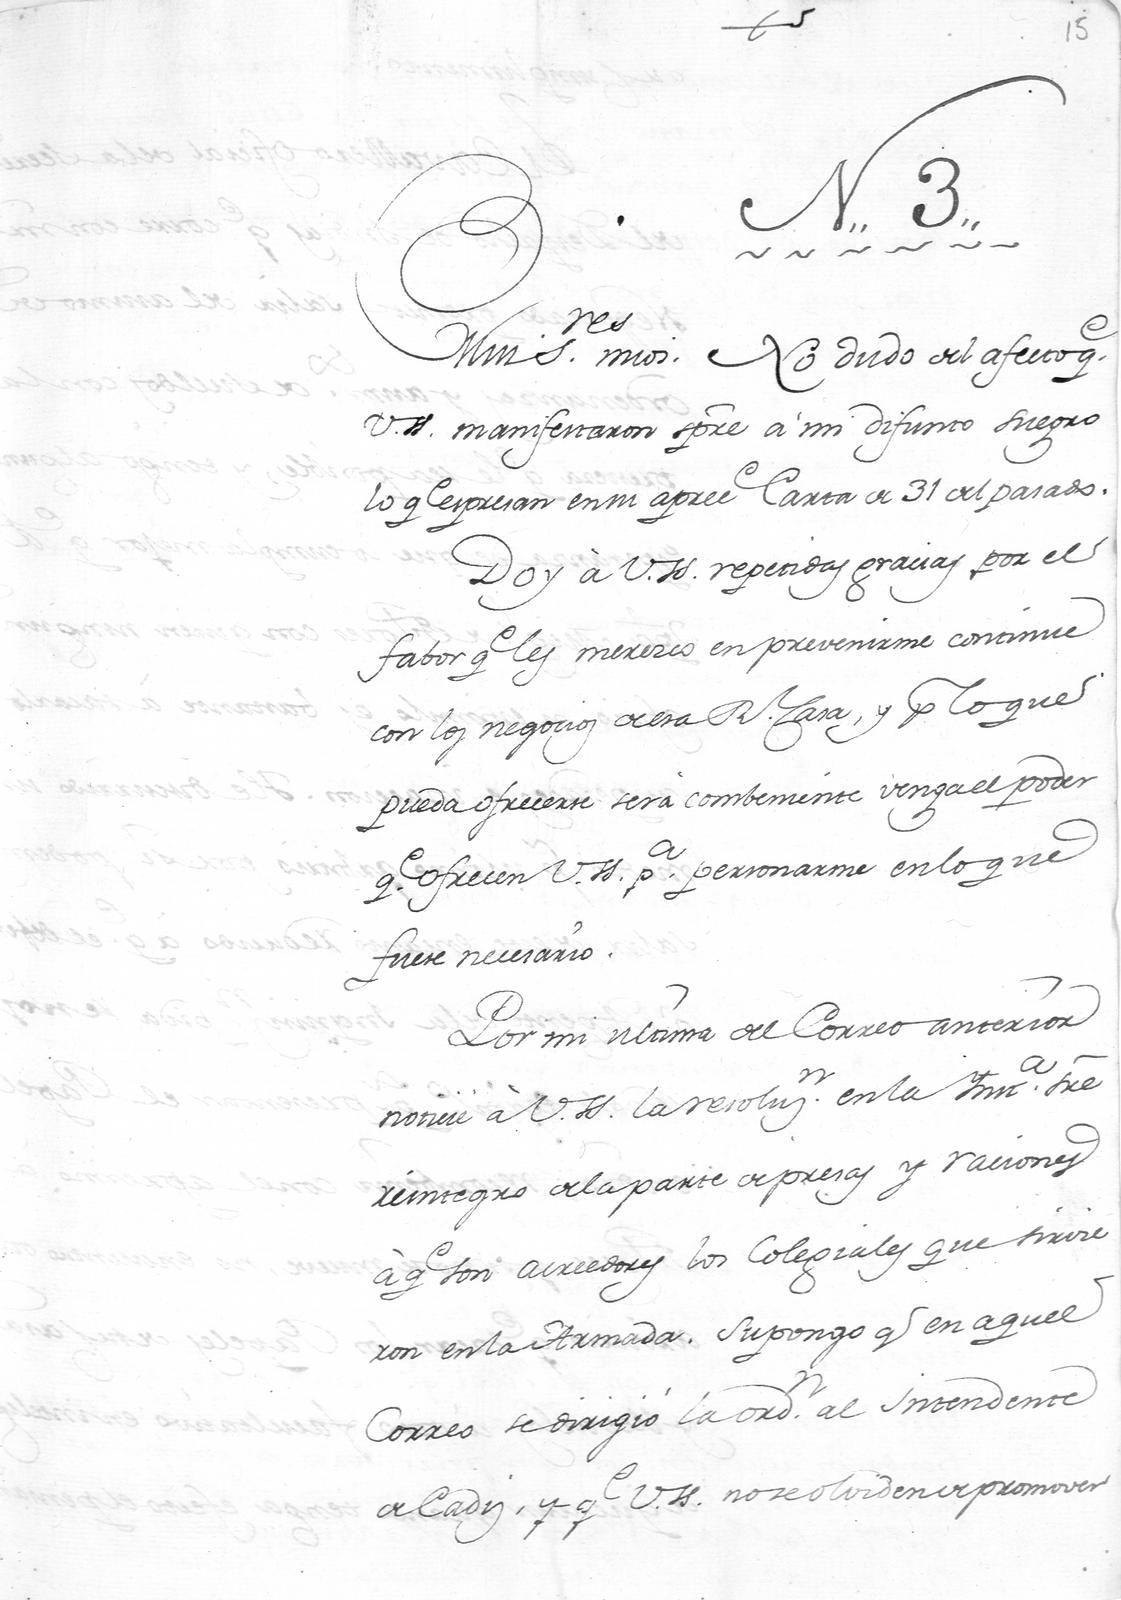 15
N,, 3,,
Mui S.res mios. No dudo del afecto q.e
V.SS. manifestaron spre à mi difunto suegro
lo q.e espresan en su aprec.e Carta de 31 del pasado.
Doy à V.SS. repetidas gracias por el
fabor q.e les merezco en prevenirme continue
con los negocios de esa R.l Casa, y p.r lo que
pueda ofrecerse será combeniente venga el poder
q.e ofrecen V.SS. p.a personarme en lo que
fuese necesario.
Por mi ultima del Correo anterior
noticié à V.SS. la resoluz.n en la Inst.a sre
reintegro de la parte de presas y raciones
à q.e son acreedores los Colegiales que sirvie
ron en la Armada. Supongo q.e en aquel
Correo se dirigió la ord.n al Intendente
de Cadiz, y q.e V.SS. no se olviden de promover